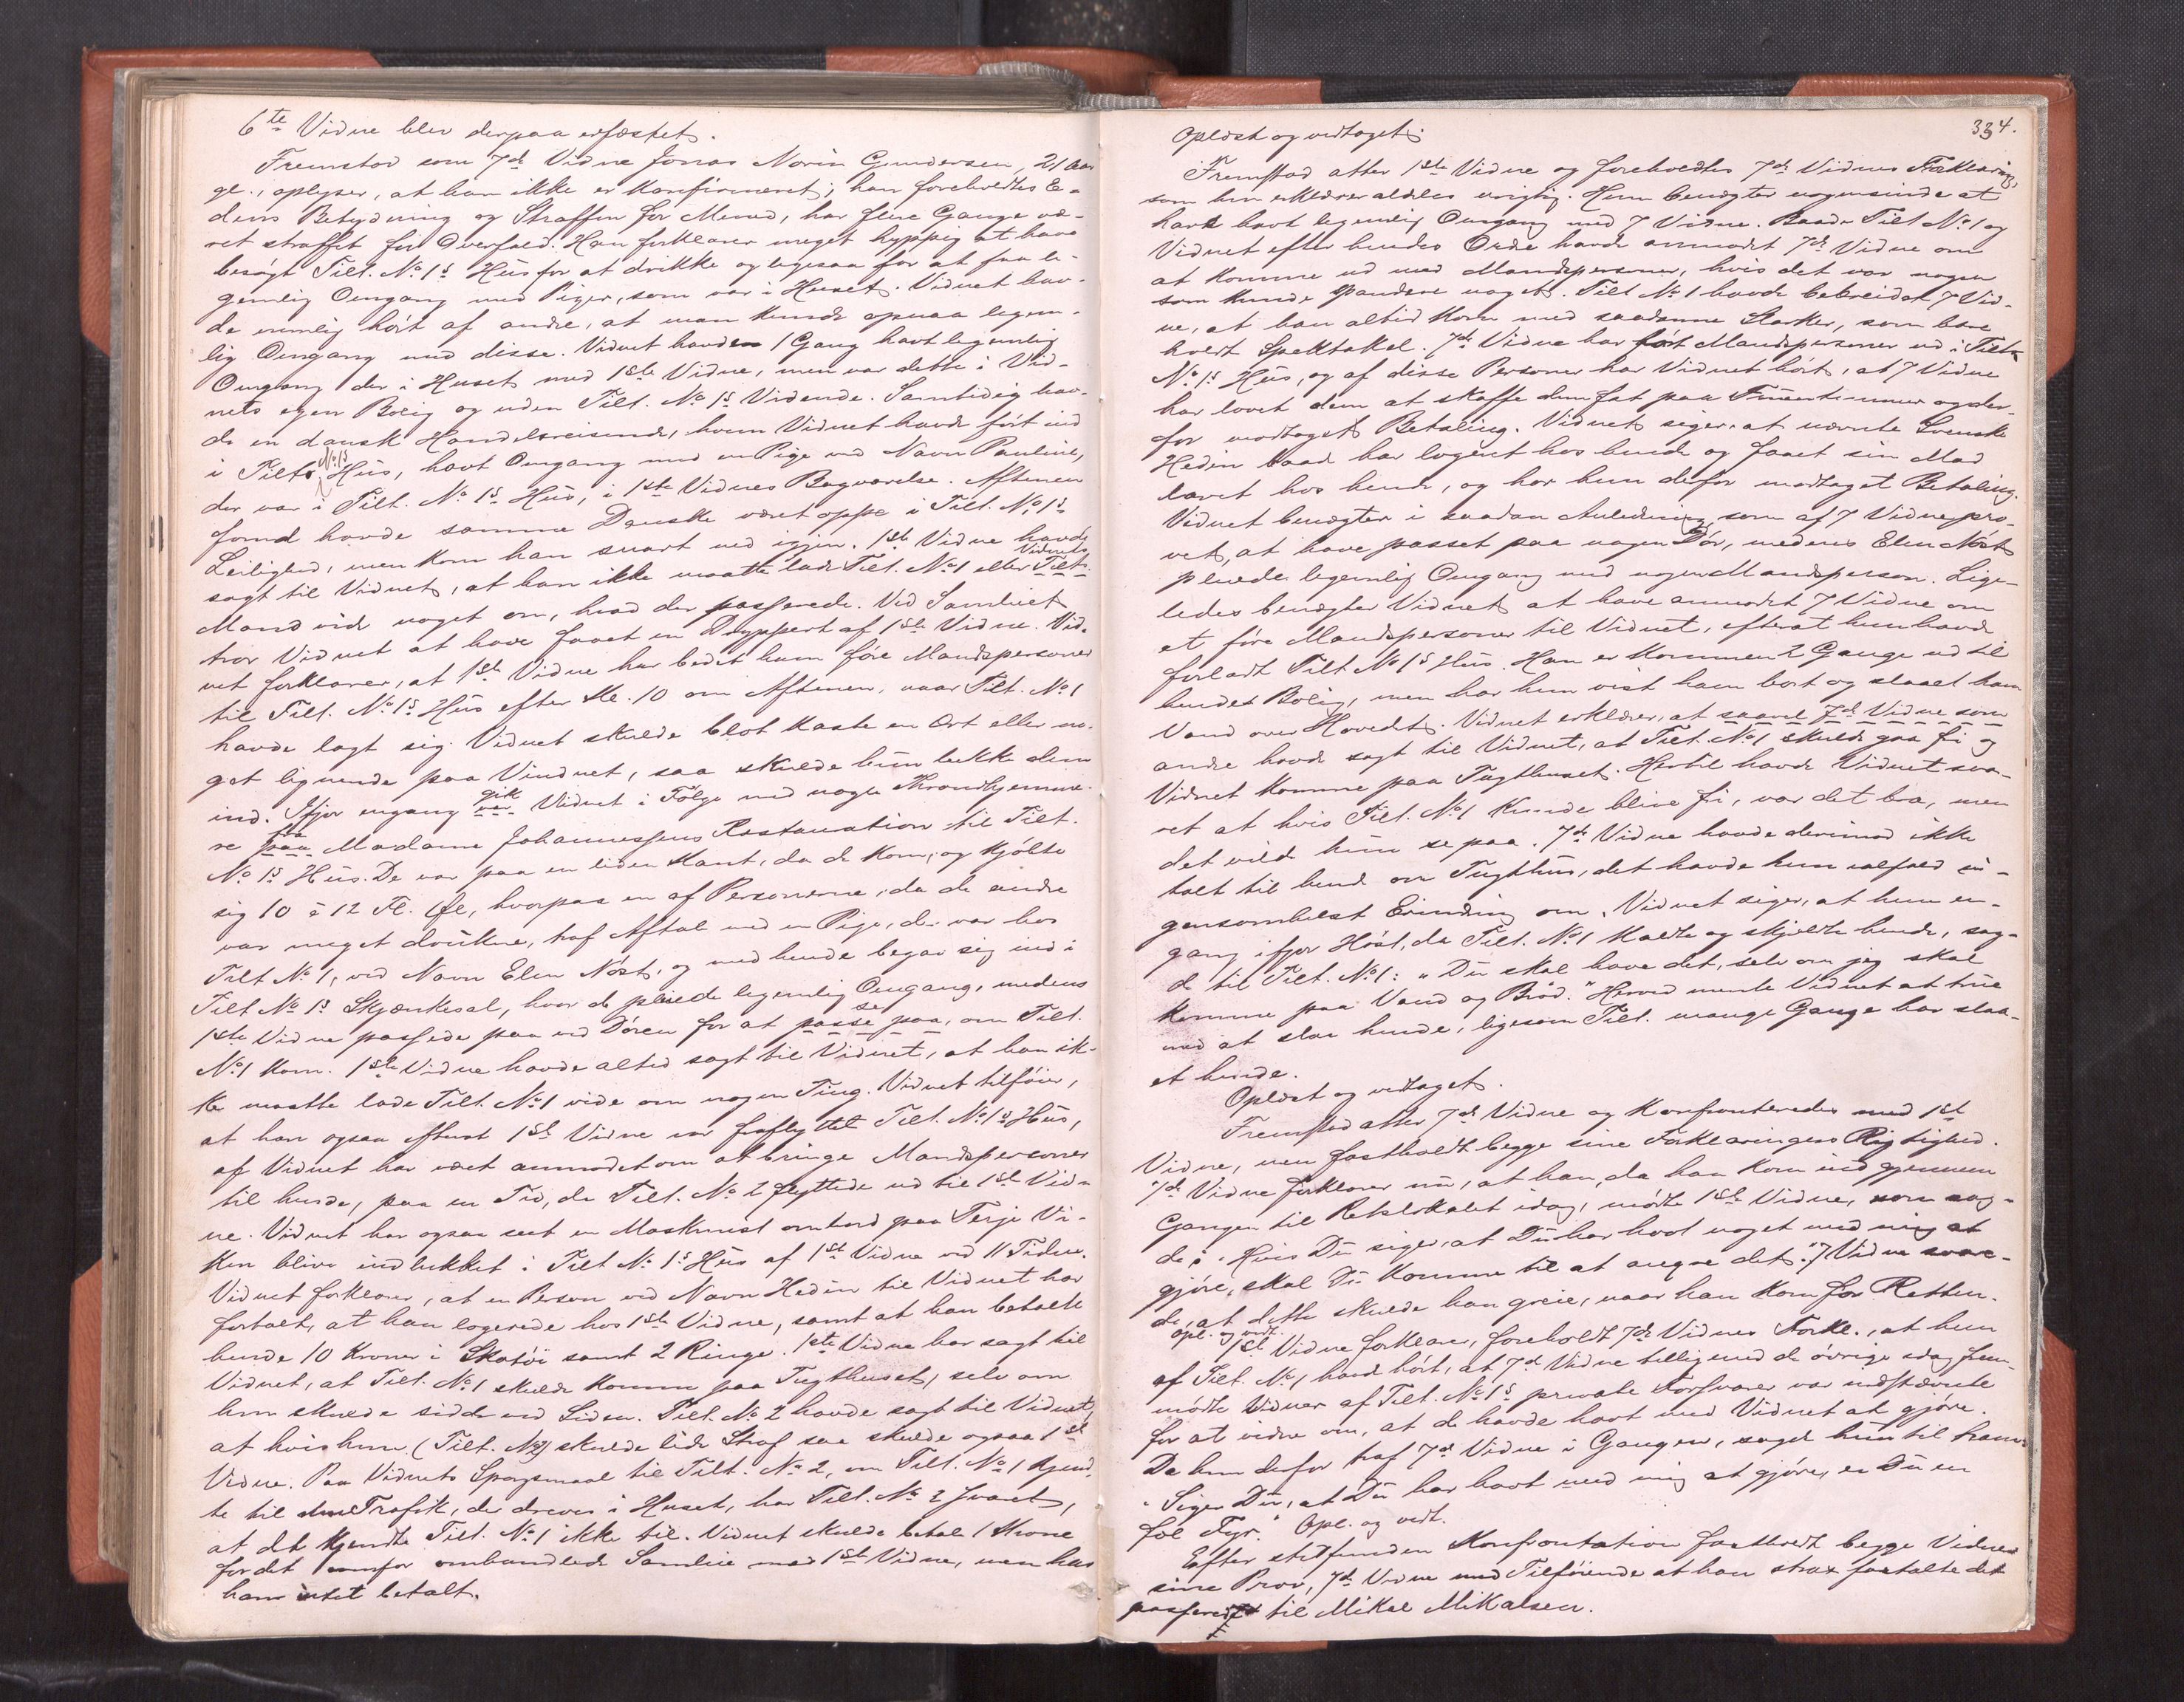 6te Vidne blev derpaa edfæstet.
Fremstod som 7de Vidne Jonas Norin Gundersen, 21 Aar
gl., oplyser, at han ikke er konfirmeret; han foreholdtes E-
dens Betydning og Straffen for Mened, har flere Gange væ-
ret straffet for Overfald. Han forklarer meget hyppig at have
besøgt Tilt. No 1s Hus for at drikke og ligesaa for at faa le-
gemlig Omgang med Piger, som var i Huset. Vidnet hav-
de nemlig hørt af andre, at man kunde opnaa legem-
lig Omgang med disse. Vidnet havde 1 Gang havt legemlig
Omgang der i Huset med 1ste Vidne, men var dette i Vid-
nets egen Bolig og uden Tilt. No 1s Vidende. Samtidig hav-
de en dansk Handelsreisende, hvem Vidnet havde ført ind
i Tilts No 1s Hus, havt Omgang med en Pige ved Navn Pauline,
der var i Tilt. No 1s Hus, i 1ste Vidnes Bagværelse. Aftenen
forud havde samme Danske været oppe i Tilt. No 1s
Leilighed, men kom han snart ned igjen. 1ste Vidne havde
sagt til Vidnet, at han ikke maatte lade Tilt. No 1 eller Vidnets Tilts.
Mand vide noget om, hvad der passerede. Ved Samleiet
tror Vidnet at have faaet en Dryppert af 1ste Vidne. Vid-
net forklarer, at 1ste Vidne har bedt ham føre Mandspersoner
til Tilt. No 1s Hus efter Kl. 10 om Aftenen, naar Tilt. No 1
havde lagt sig. Vidnet skulde blot kaste en Ort eller no-
get lignende paa Vinduet, saa skulde hun lukke dem
ind. Ifjor engang gik var Vidnet i Følge med nogle Throndhjemme-
re fra paa Madame Johannessens Restauration til Tilt.
No 1s Hus. De var paa en liden Kant, da de kom, og kjøbte
sig 10 à 12 Fl. Øl, hvorpaa en af Personerne, da de andre
var meget drukne, traf Aftal med en Pige, der var hos
Tilt No 1, ved Navn Elen Nøst, og med hende begav sig ind i
Tilt No 1s Skjænkesal, hvor de pleiede legemlig Omgang, medens
1ste Vidne passede paa ved Døren for at se passe paa, om Tilt.
No 1 kom. 1ste Vidne havde altid sagt til Vidnet, at han ik-
ke maatte lade Tilt. No 1 vide om nogen Ting. Vidnet tilføier,
at han ogsaa efterat 1ste Vidne var fraflyttet Tilt. No 1s Hus,
af Vidnet har været anmodet om at bringe Mandspersoner
til hende, paa en Tid, da Tilt. No 2 flyttede ud til 1ste Vid-
ne. Vidnet har ogsaa seet en Maskinist ombord paa Terje Vi-
ken blive indlukket i Tilt No 1s Hus af 1ste Vidne ved 11 Tiden.
Vidnet forklarer, at en Person ved Navn Hedin til Vidnet har
fortalt, at han logerede hos 1ste Vidne, samt at han betalte
hende 10 Kroner i Skotøi samt 2 Ringe. 1ste Vidne har sagt til
Vidnet, at Tilt. No 1 skulde komme paa Tugthuset, selv om
hun skulde sidde ved Siden. Tilt. No 2 havde sagt til Vidnet,
at hvis hun (Tilt. No 2) skulde lide Straf saa skulde ogsaa 1ste
Vidne. Paa Vidnets Spørgsmaal til Tilt. No 2, om Tilt. No 1 kjend-
te til den Trafik, der dreves i Huset, har Tilt. No 2 svaret,
at det kjendte Tilt. No 1 ikke til. Vidnet skulde betale 1 Krone
for det ovenfor omhandlede Samleie med 1ste Vidne, men har
han intet betalt.
334.
Oplæst og vedtaget.
Fremstod atter 1ste Vidne og foreholdtes 7de Vidnes Forklaring,
som hun erklærer aldeles urigtig. Hun benegter nogensinde at
have havt legemlig Omgang med 7 Vidne. Baade Tilt No 1 og
Vidnet efter hendes Ordre havde anmodet 7de Vidne om
at komme ud med Mandspersoner, hvis det var nogen
som kunde spandere noget. Tilt No 1 havde bebreidet 7 Vid-
ne, at han altid kom med saadanne Starker, som bare
holdt Spektakel. 7de Vidne har ført Mandspersoner ud i Tilts
No 1s Hus, og af disse Personer har Vidnet hørt, at 7 Vidne
har lovet dem at skaffe dem fat paa Fruentimmer og der-
for modtaget Betaling. Vidnet siger, at nævnte Svenske
Hedin baade har logeret hos hende og faaet sin Mad
lavet hos hende, og har hun derfor modtaget Betaling.
Vidnet benegter i saadan Anledning, som af 7 Vidne prø-
vet, at have passet paa nogen Dør, medens Elen Nøst
pleiede legemlig Omgang med nogen Mandsperson. Lige-
ledes benegter Vidnet at have anmodet 7 Vidne om
at føre Mandspersoner til Vidnet, efterat hun havde
forladt Tilt No 1s Hus. Han er kommen 2 Gange ud til
hendes Bolig, men har hun vist ham bort og slaaet ham
Vand over Hovedet. Vidnet erklærer, at saavel 7de Vidne som
andre havde sagt til Vidnet, at Tilt. No 1 skulde gaa fri og
Vidnet komme paa Tugthuset. Hertil havde Vidnet sva-
ret at hvis Tilt. No 1 kunde blive fri, var det bra, men
det vilde hun se paa. 7de Vidne havde derimod ikke
talt til hende om Tugthus, det havde hun ialfald in-
gensomhelst Erindring om. Vidnet siger, at hun en-
gang ifjor Høst, da Tilt. No 1 kaldte og skjældte hende, sag-
de til Tilt. No 1: "Du skal have det, selv om jeg skal
komme paa Vand og Brød." Herved mente Vidnet at true
med at slaa hende, ligesom Tilt. mange Gange har slaa-
et hende.
Oplæst og vedtaget.
Fremstod atter 7de Vidne og konfronteredes med 1ste
Vidne, men fastholdt begge sine Forklaringers Rigtighed.
7de Vidne forklarer nu, at han, da han kom ind gjennem
Gangen til Retslokalet idag, mødte 1ste Vidne, som sag-
de: "Hvis Du siger, at Du har havt noget med mig at
gjøre, skal Du komme til at angre det." 7 Vidne svare-
de, at dette skulde han greie, naar han kom for Retten.
opl. og vedt.
1ste Vidne forklarer, foreholdt 7de Vidnes Forkl., at hun
af Tilt. No 1 havde hørt, at 7de Vidne tilligemed de øvrige idag frem-
mødte Vidner af Tilt. No 1s private Forsvarer var indstævnte
for at vidne om, at de havde havt med Vidnet at gjøre.
Da hun derfor traf 7de Vidne i Gangen, sagde hun til ham:
"Siger Du, at Du har havt med mig at gjøre, er Du en
fæl Fyr." Opl. og vedt.
Efter stedfunden Konfrontation fastholdt begge Vidner
sine Prov, 7de Vidne med Tilføiende at han strax fortalte det
passerede til Mikal Mikalsen.